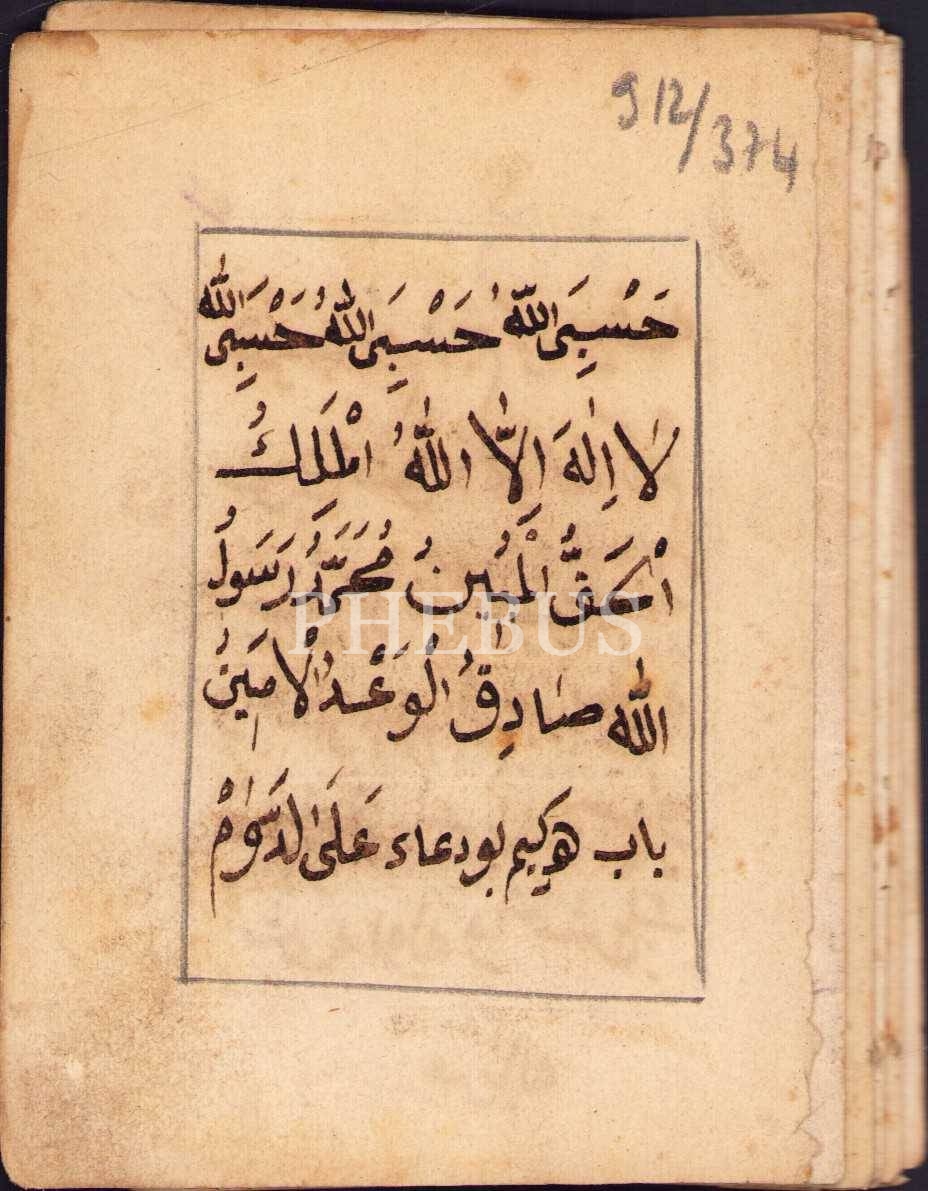 912/374
حَسْبِىَ اللّٰهُ حَسْبِىَ اللّٰهُ حَسْبِىَ اللّٰه
لَا اِلٰهَ اِلَّا اللّٰهُ الْمَلَكُ
اْلحَقُّ الْمُبِينُ مُحَمَّدٌ رَسَولُ
اللّٰه صَادِقُ الْوَعْدُ الْاَمِينُ
باب هركيم بو دعاء عَلَى الدَّوَامْ
PHEBUS